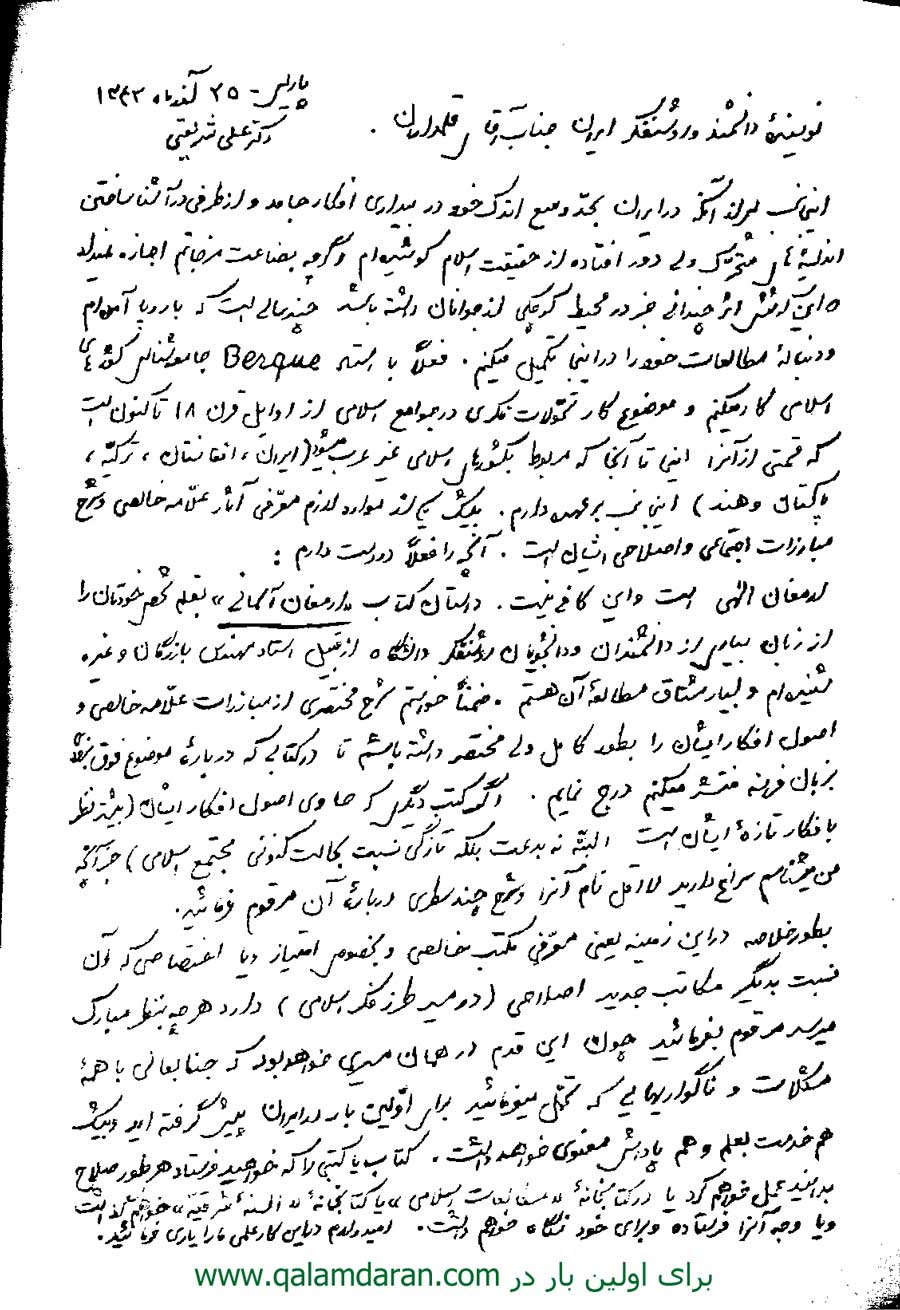 پاریس - ۲۵ آذرماه ۱۳۴۲
دکتر علی شریعتی
نویسندهٔ دانشمند و روشنفکر ایران جناب آقای قلمداران .
اینجانب پس از آنکه در ایران بحدّ وسع اندک خود در بیداری افکار جامد و از طرفی در آشنا ساختن
اندیشه‌های متحرک ولی دور افتاده از حقیقت اسلام کوشیده‌ام و گرچه بضاعت مزجاتم اجازه نمیداد
که این کوشش اثر چندانی جز در محیط کوچکی از جوانان داشته باشد چند سالی است که باروپا آمده‌ام
و دنبالهٔ مطالعات خود را در اینجا تکمیل میکنم . فعلاً با استاد Berque جامعه‌شناس کشورهای
اسلامی کار میکنم و موضوع کار تحوّلات فکری در جوامع اسلامی از اوایل قرن ۱۸ تا کنون است
که قسمتی از آنرا یعنی تا آنجا که مربوط بکشورهای اسلامی غیر عرب میشود (ایران ، افغانستان ، ترکیّه ،
پاکستان و هند) اینجانب بر عهده دارم . بیشک یکی از موارد لازم معرّفی آثار علّامه خالصی و شرح
مبارزات اجتماعی و اصلاحی ایشان است . آنچه را فعلاً در دست دارم :
ارمغان الهی است و این کافی نیست . داستان کتاب «ارمغان آسمانی» بقلم شخص خودتان را
از زبان بسیاری از دانشمندان و دانشجویان روشنفکر دانشگاه از قبیل استاد مهندس بازرگان و غیره
شنیده‌ام و بسیار مشتاق مطالعهٔ آن هستم . ضمناً خواستم شرح مختصری از مبارزات علّامه خالصی و
اصول افکار ایشان را بطور کامل ولی مختصر داشته باشم تا در کتابی که دربارهٔ موضوع فوق
بزبان فرانسه منتشر میکنم درج نمایم . اگر کتب دیگری که حاوی اصول افکار ایشان (بیشتر نظر
بافکار تازهٔ ایشان است البتّه نه بدعت بلکه تازگی نسبت بحالت کنونی مجتمع اسلامی) جز آنچه
من میشناسم سراغ دارید لااقل نام آنرا و شرح چند سطری دربارهٔ آن مرقوم فرمائید .
بطور خلاصه در این زمینه یعنی معرّفی مکتب خالصی و بخصوص امتیاز و یا اختصاصی که آن
نسبت بدیگر مکاتب جدید اصلاحی (در مسیر طرز فکر اسلامی) دارد هر چه بنظر مبارک
میرسد مرقوم بفرمائید چون این قدم در همان مسیری خواهد بود که جنابعالی با همهٔ
مشکلات و ناگواریهایی که تحمّل میفرمائید برای اوّلین بار در ایران پیش گرفته‌اید و بیشک
هم خدمت بعلم و هم پاداش معنوی خواهد داشت . کتاب یا کتبی را که خواهید فرستاد هر طور صلاح
بدانید عمل خواهم کرد یا در کتابخانهٔ «مطالعات اسلامی» یا کتابخانهٔ «السنهٔ شرقیّه» خواهم گذاشت
و یا وجه آنرا فرستاده و برای خود نگاه خواهم داشت . امیدوارم در این کار علمی ما را یاری فرمائید .
برای اولین بار در www.qalamdaran.com